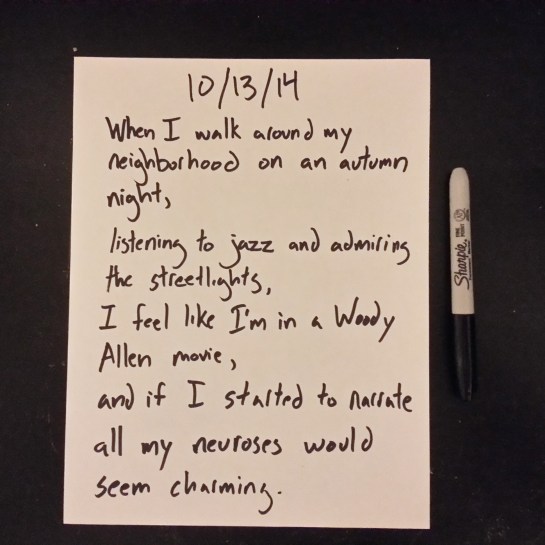 10/13/14
When I walk around my
neighborhood on an autumn
night,
listening to jazz and admiring
the streetlights,
I feel like I'm in a Woody
Allen movie,
and if I started to narrate
all my neuroses would
seem charming.
Sharpie